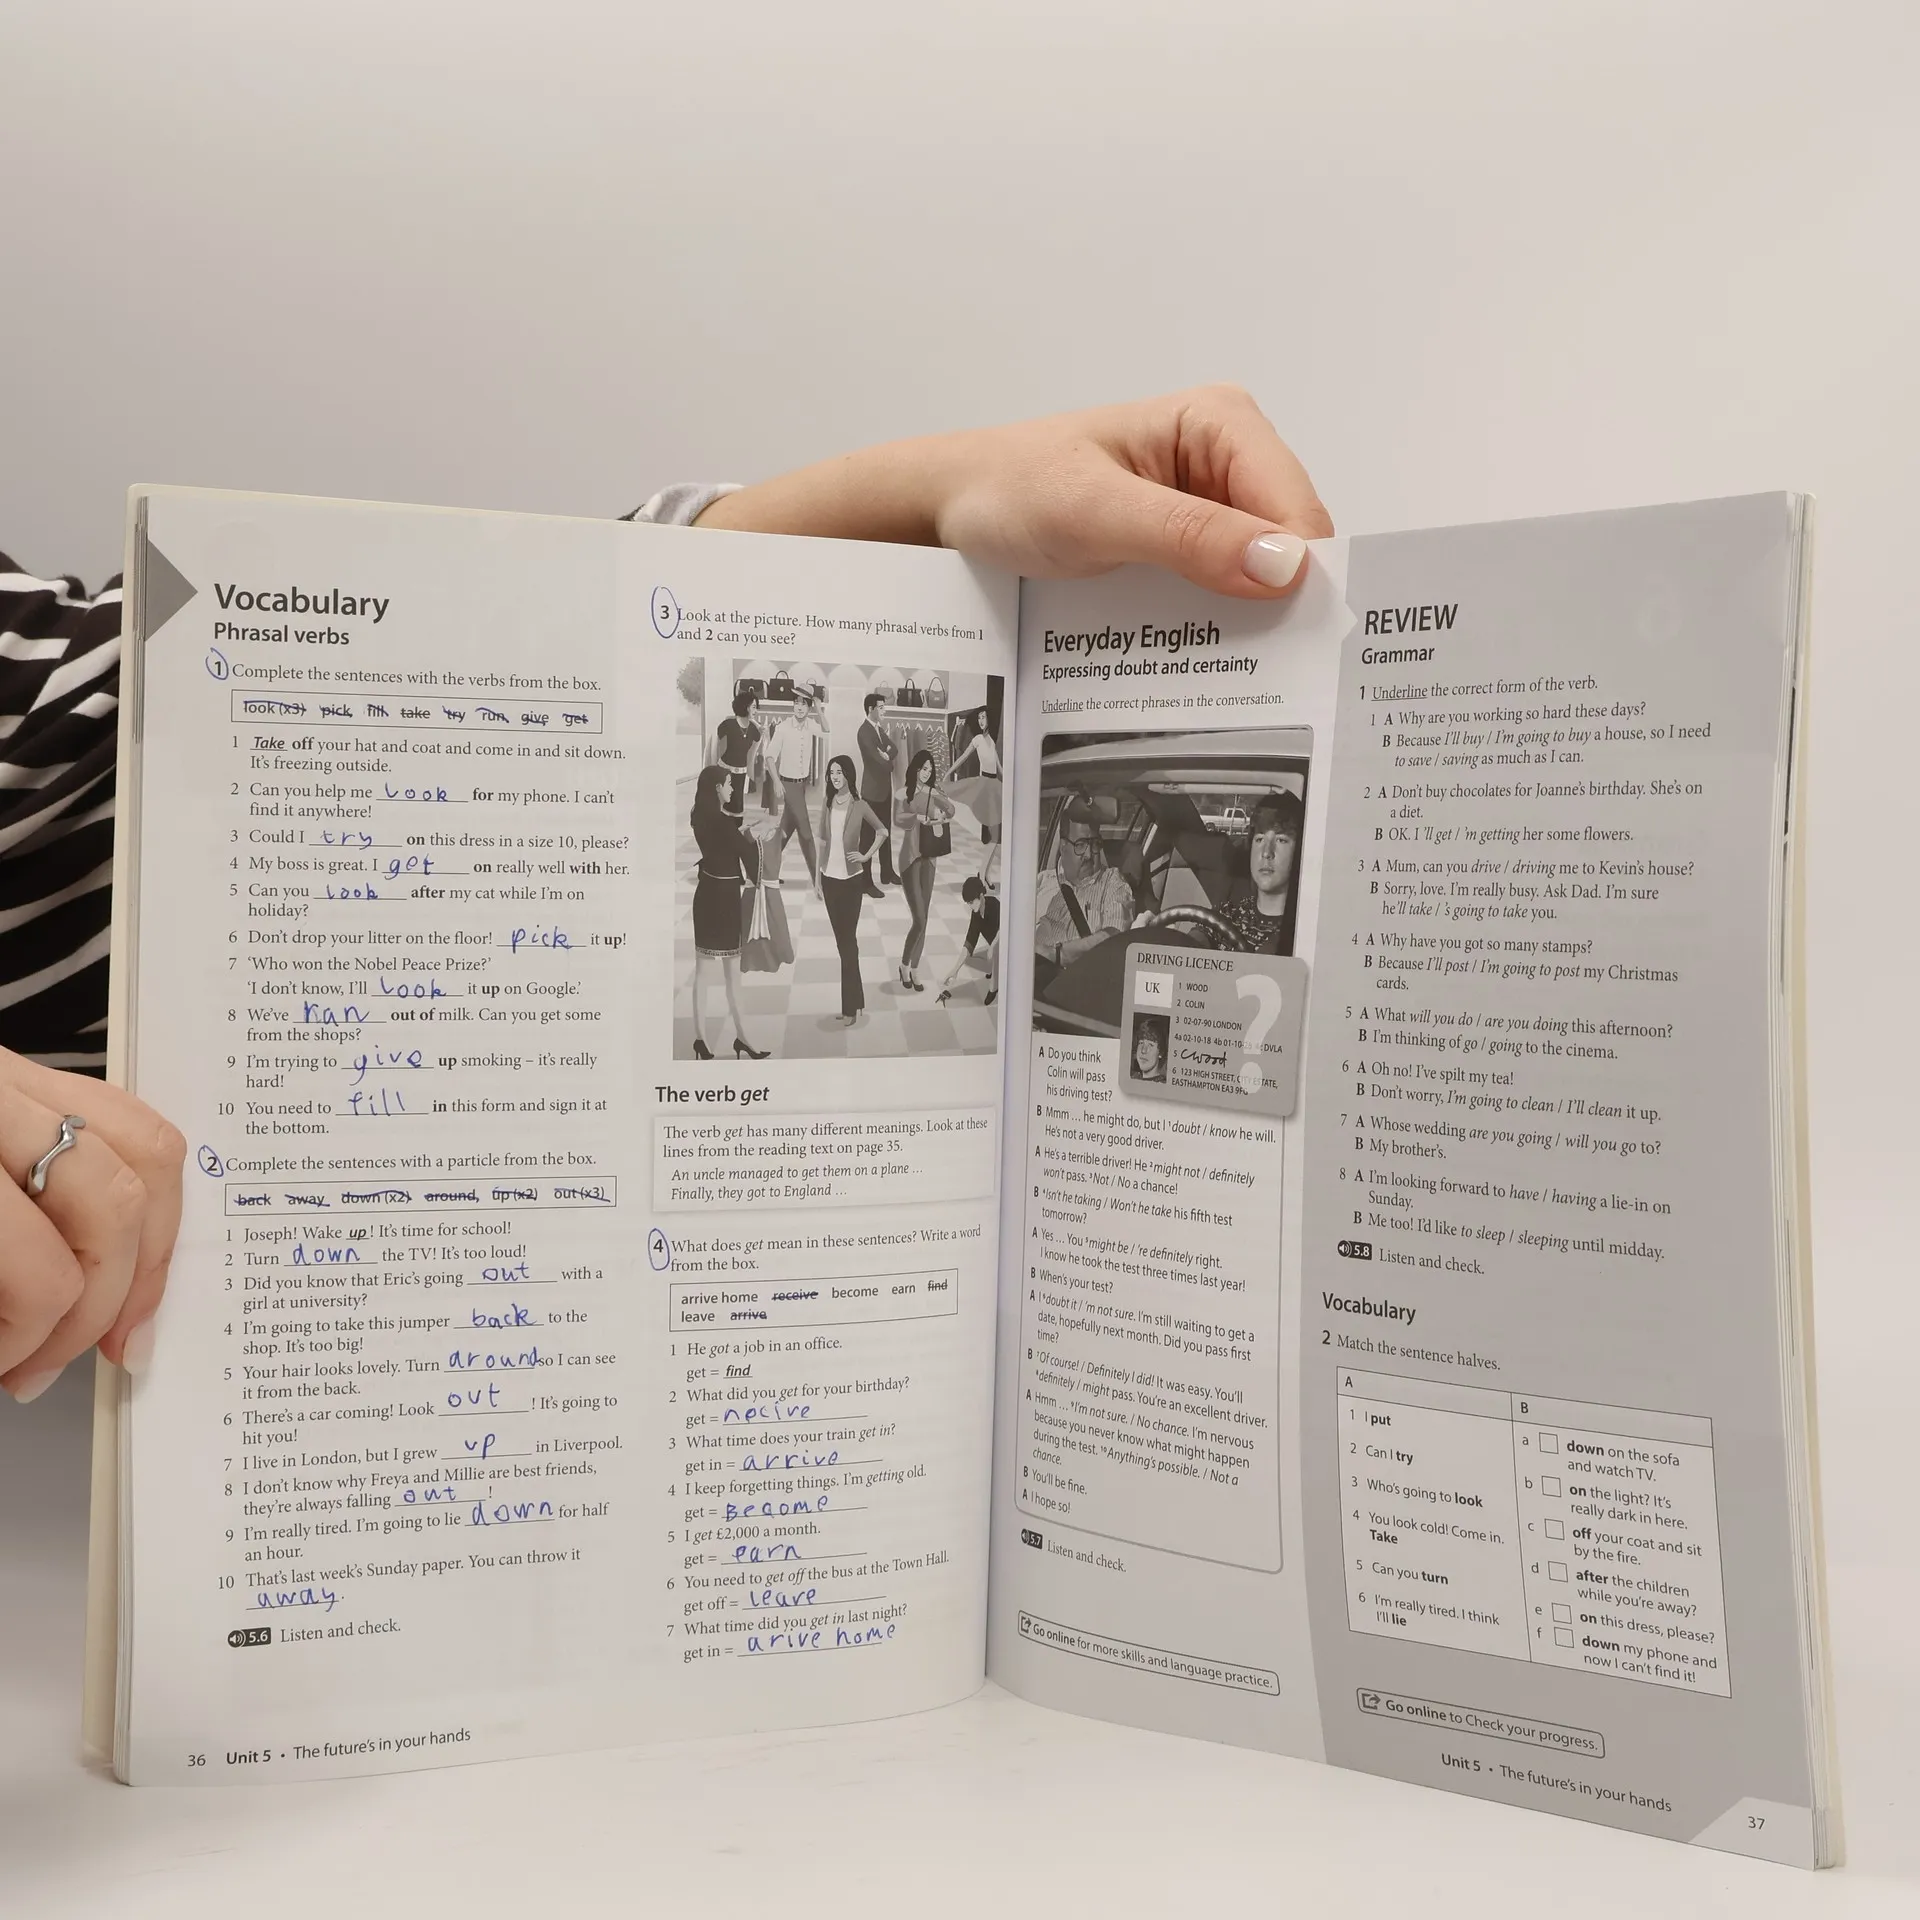 Vocabulary
Phrasal verbs
1 Complete the sentences with the verbs from the box.
look (x3) pick fill take try run give get
1 Take off your hat and coat and come in and sit down.
It's freezing outside.
2 Can you help me look for my phone. I can't
find it anywhere!
3 Could I try on this dress in a size 10, please?
4 My boss is great. I get on really well with her.
5 Can you look after my cat while I'm on
holiday?
6 Don't drop your litter on the floor! pick it up!
7 'Who won the Nobel Peace Prize?'
'I don't know, I'll look it up on Google.'
8 We've ran out of milk. Can you get some
from the shops?
9 I'm trying to give up smoking – it's really
hard!
10 You need to fill in this form and sign it at
the bottom.
2 Complete the sentences with a particle from the box.
back away down (x2) around up (x2) out (x3)
1 Joseph! Wake up! It's time for school!
2 Turn down the TV! It's too loud!
3 Did you know that Eric's going out with a
girl at university?
4 I'm going to take this jumper back to the
shop. It's too big!
5 Your hair looks lovely. Turn around so I can see
it from the back.
6 There's a car coming! Look out! It's going to
hit you!
7 I live in London, but I grew up in Liverpool.
8 I don't know why Freya and Millie are best friends,
they're always falling out!
9 I'm really tired. I'm going to lie down for half
an hour.
10 That's last week's Sunday paper. You can throw it
away.
5.6 Listen and check.
36 Unit 5 • The future's in your hands
3 Look at the picture. How many phrasal verbs from 1
and 2 can you see?
The verb get
The verb get has many different meanings. Look at these
lines from the reading text on page 35.
An uncle managed to get them on a plane ...
Finally, they got to England ...
4 What does get mean in these sentences? Write a word
from the box.
arrive home receive become earn find
leave arrive
1 He got a job in an office.
get = find
2 What did you get for your birthday?
get = recive
3 What time does your train get in?
get in = arrive
4 I keep forgetting things. I'm getting old.
get = Become
5 I get £2,000 a month.
get = earn
6 You need to get off the bus at the Town Hall.
get off = leave
7 What time did you get in last night?
get in = arive home
Everyday English
Expressing doubt and certainty
Underline the correct phrases in the conversation.
DRIVING LICENCE
UK
1 WOOD
2 COLIN
3 02-07-90 LONDON
4a 02-10-18 4b 01-10- DVLA
5 CWood
6 123 HIGH STREET, CITY ESTATE,
EASTHAMPTON EA3
?
A Do you think
Colin will pass
his driving test?
B Mmm ... he might do, but I 1doubt / know he will.
He's not a very good driver.
A He's a terrible driver! He 2might not / definitely
won't pass. 3Not / No a chance!
B 4Isn't he taking / Won't he take his fifth test
tomorrow?
A Yes ... You 5might be / 're definitely right.
I know he took the test three times last year!
B When's your test?
A I 6doubt it / 'm not sure. I'm still waiting to get a
date, hopefully next month. Did you pass first
time?
B 7Of course! / Definitely I did! It was easy. You'll
8definitely / might pass. You're an excellent driver.
A Hmm ... 9I'm not sure. / No chance. I'm nervous
because you never know what might happen
during the test. 10Anything's possible. / Not a
chance.
B You'll be fine.
A I hope so!
5.7 Listen and check.
Go online for more skills and language practice.
REVIEW
Grammar
1 Underline the correct form of the verb.
1 A Why are you working so hard these days?
B Because I'll buy / I'm going to buy a house, so I need
to save / saving as much as I can.
2 A Don't buy chocolates for Joanne's birthday. She's on
a diet.
B OK. I 'll get / 'm getting her some flowers.
3 A Mum, can you drive / driving me to Kevin's house?
B Sorry, love. I'm really busy. Ask Dad. I'm sure
he'll take / 's going to take you.
4 A Why have you got so many stamps?
B Because I'll post / I'm going to post my Christmas
cards.
5 A What will you do / are you doing this afternoon?
B I'm thinking of go / going to the cinema.
6 A Oh no! I've spilt my tea!
B Don't worry, I'm going to clean / I'll clean it up.
7 A Whose wedding are you going / will you go to?
B My brother's.
8 A I'm looking forward to have / having a lie-in on
Sunday.
B Me too! I'd like to sleep / sleeping until midday.
5.8 Listen and check.
Vocabulary
2 Match the sentence halves.
A
1 I put
2 Can I try
3 Who's going to look
4 You look cold! Come in.
Take
5 Can you turn
6 I'm really tired. I think
I'll lie
B
a down on the sofa
and watch TV.
b on the light? It's
really dark in here.
c off your coat and sit
by the fire.
d after the children
while you're away?
e on this dress, please?
f down my phone and
now I can't find it!
Go online to Check your progress.
Unit 5 • The future's in your hands
37